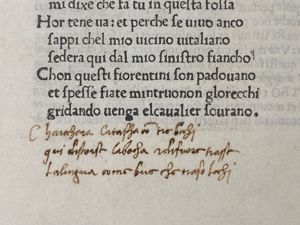 mi dixe che fa tu in questa fossa
Hor tene ua: et perche se uiuo anco
sappi chel mio uicino uitaliano
sedera qui dal mio sinistro fiancho
Chon questi fiorentini son padouano
et spesse fiate mintruonon glorecchi
gridando uenga elcaualier sourano.
qui distorse la bocha
la lingua come bue che naso lechi